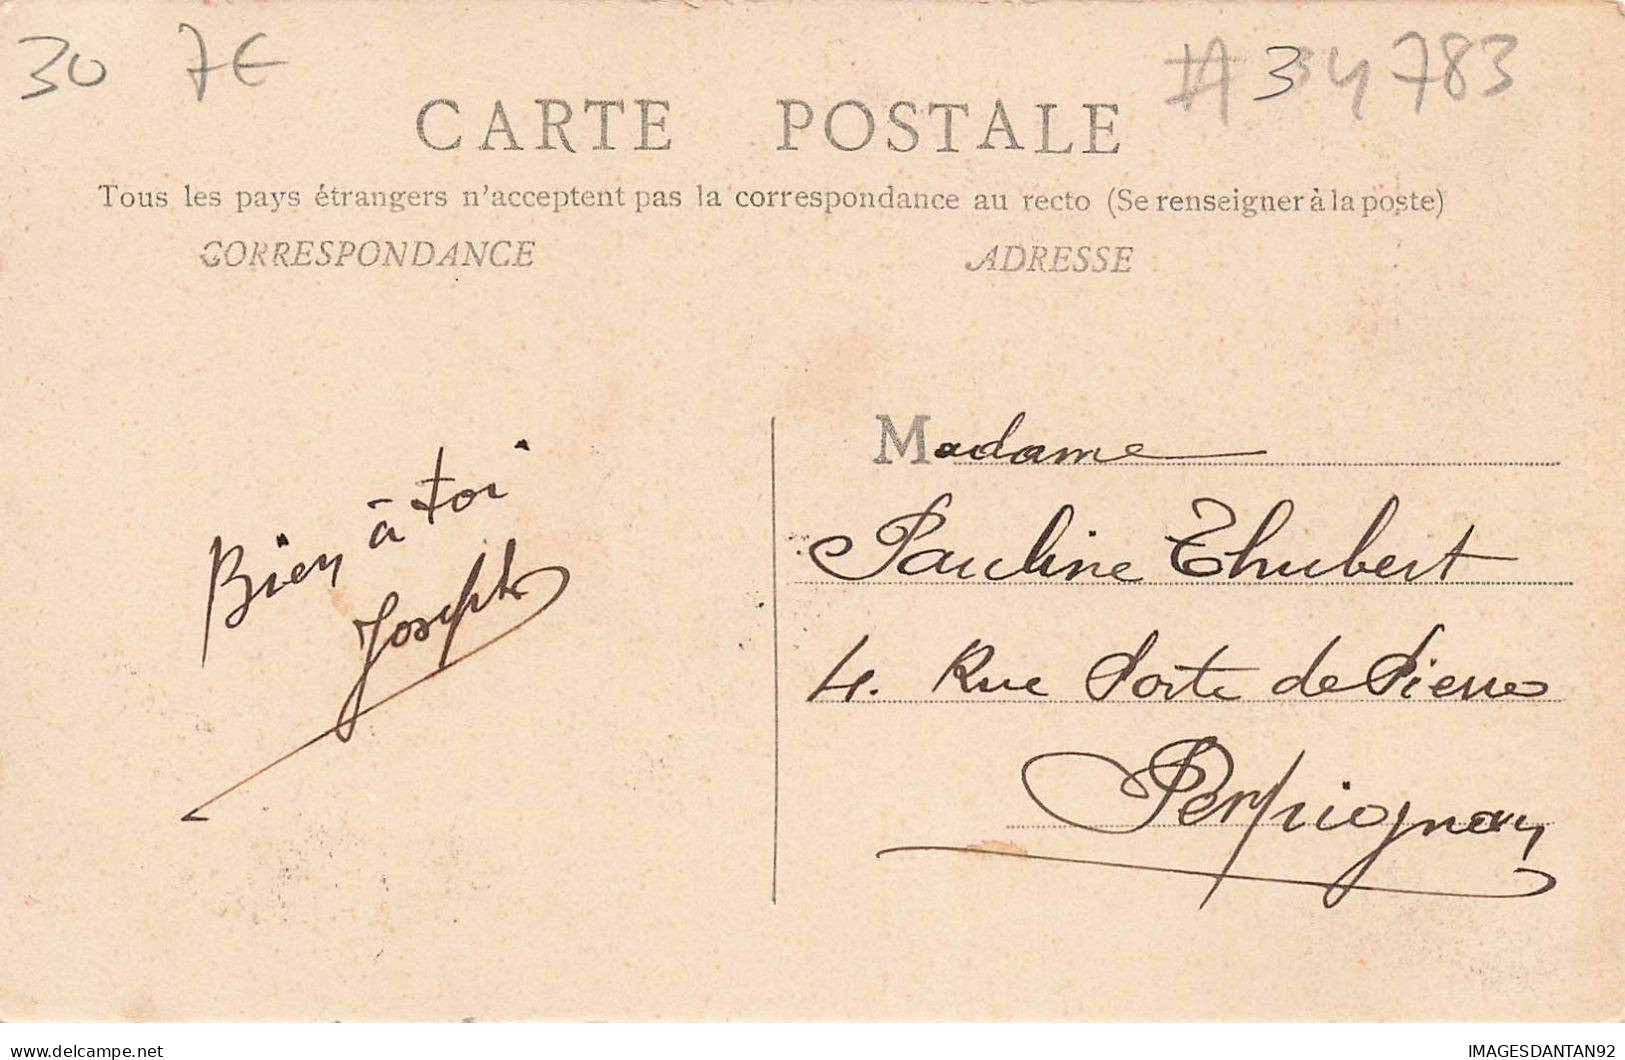 30 7€ #34783
CARTE POSTALE
Tous les pays étrangers n'acceptent pas la correspondance au recto (Se renseigner à la poste)
CORRESPONDANCE ADRESSE
Bien à toi
Joseph
Madame
Pauline Thubert
4. Rue Porte de Pierre
Perpignan
delcampe.net
IMAGESDANTAN92